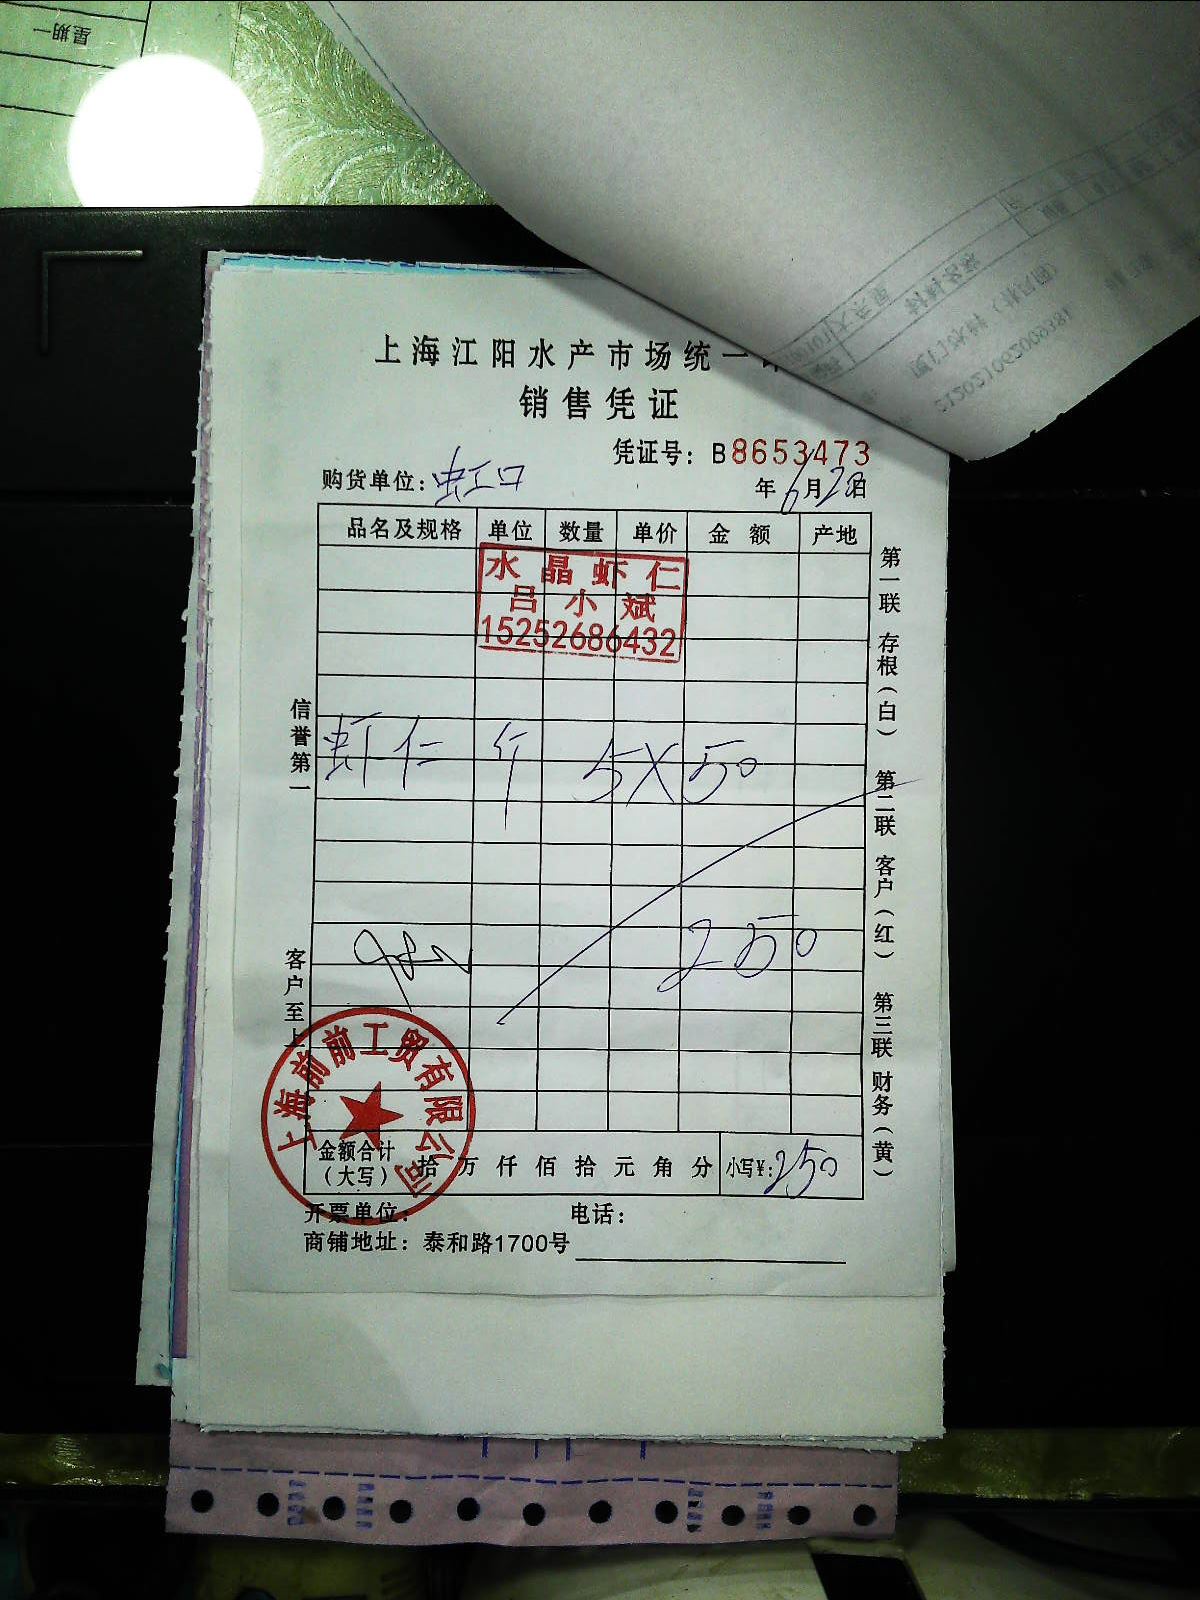 星期一
上海江阳水产市场统一
销售凭证
凭证号：B8653473
购货单位：虹口 年6月20日
品名及规格 单位 数量 单价 金额 产地
水晶虾仁
吕小斌
15252686432
虾仁 斤 5X50
250
信誉第一
客户至上
第一联 存根（白） 第二联 客户（红） 第三联 财务（黄）
上海前前工贸有限公司
金额合计（大写） 拾万仟佰拾元角分 小写¥：250
开票单位： 电话：
商铺地址：泰和路1700号